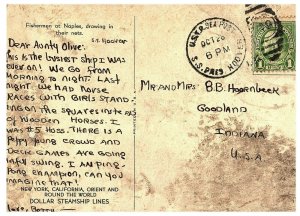 Fishermen at Naples, drawing in
their nets.
S.S. HOOVER
DEAR AUNTY OLIVE:
THIS IS THE BUSIEST SHIP I WAS
EVER ON! WE GO FROM
MORNING TO NIGHT. LAST
NIGHT WE HAD HORSE
RACES WITH GIRLS STAND
ING ON THE SQUARES INSTEAD
OF WOODEN HORSES. I
WAS #5 HOSS. THERE IS A
PEPPY YOUNG CROWD AND
DECK GAMES ARE GOING
FULL SWING. I AM PING-
PONG CHAMPION, CAN YOU
IMAGINE THAT!
NEW YORK, CALIFORNIA, ORIENT AND
ROUND THE WORLD
DOLLAR STEAMSHIP LINES
LOVE, BETTY
U.S.T.P. SEA POST
OCT 28
6 PM
S.S. PRES.
1
1
MR AND MRS B.B. HOORNBEEK
GOODLAND
INDIANA
U.S.A